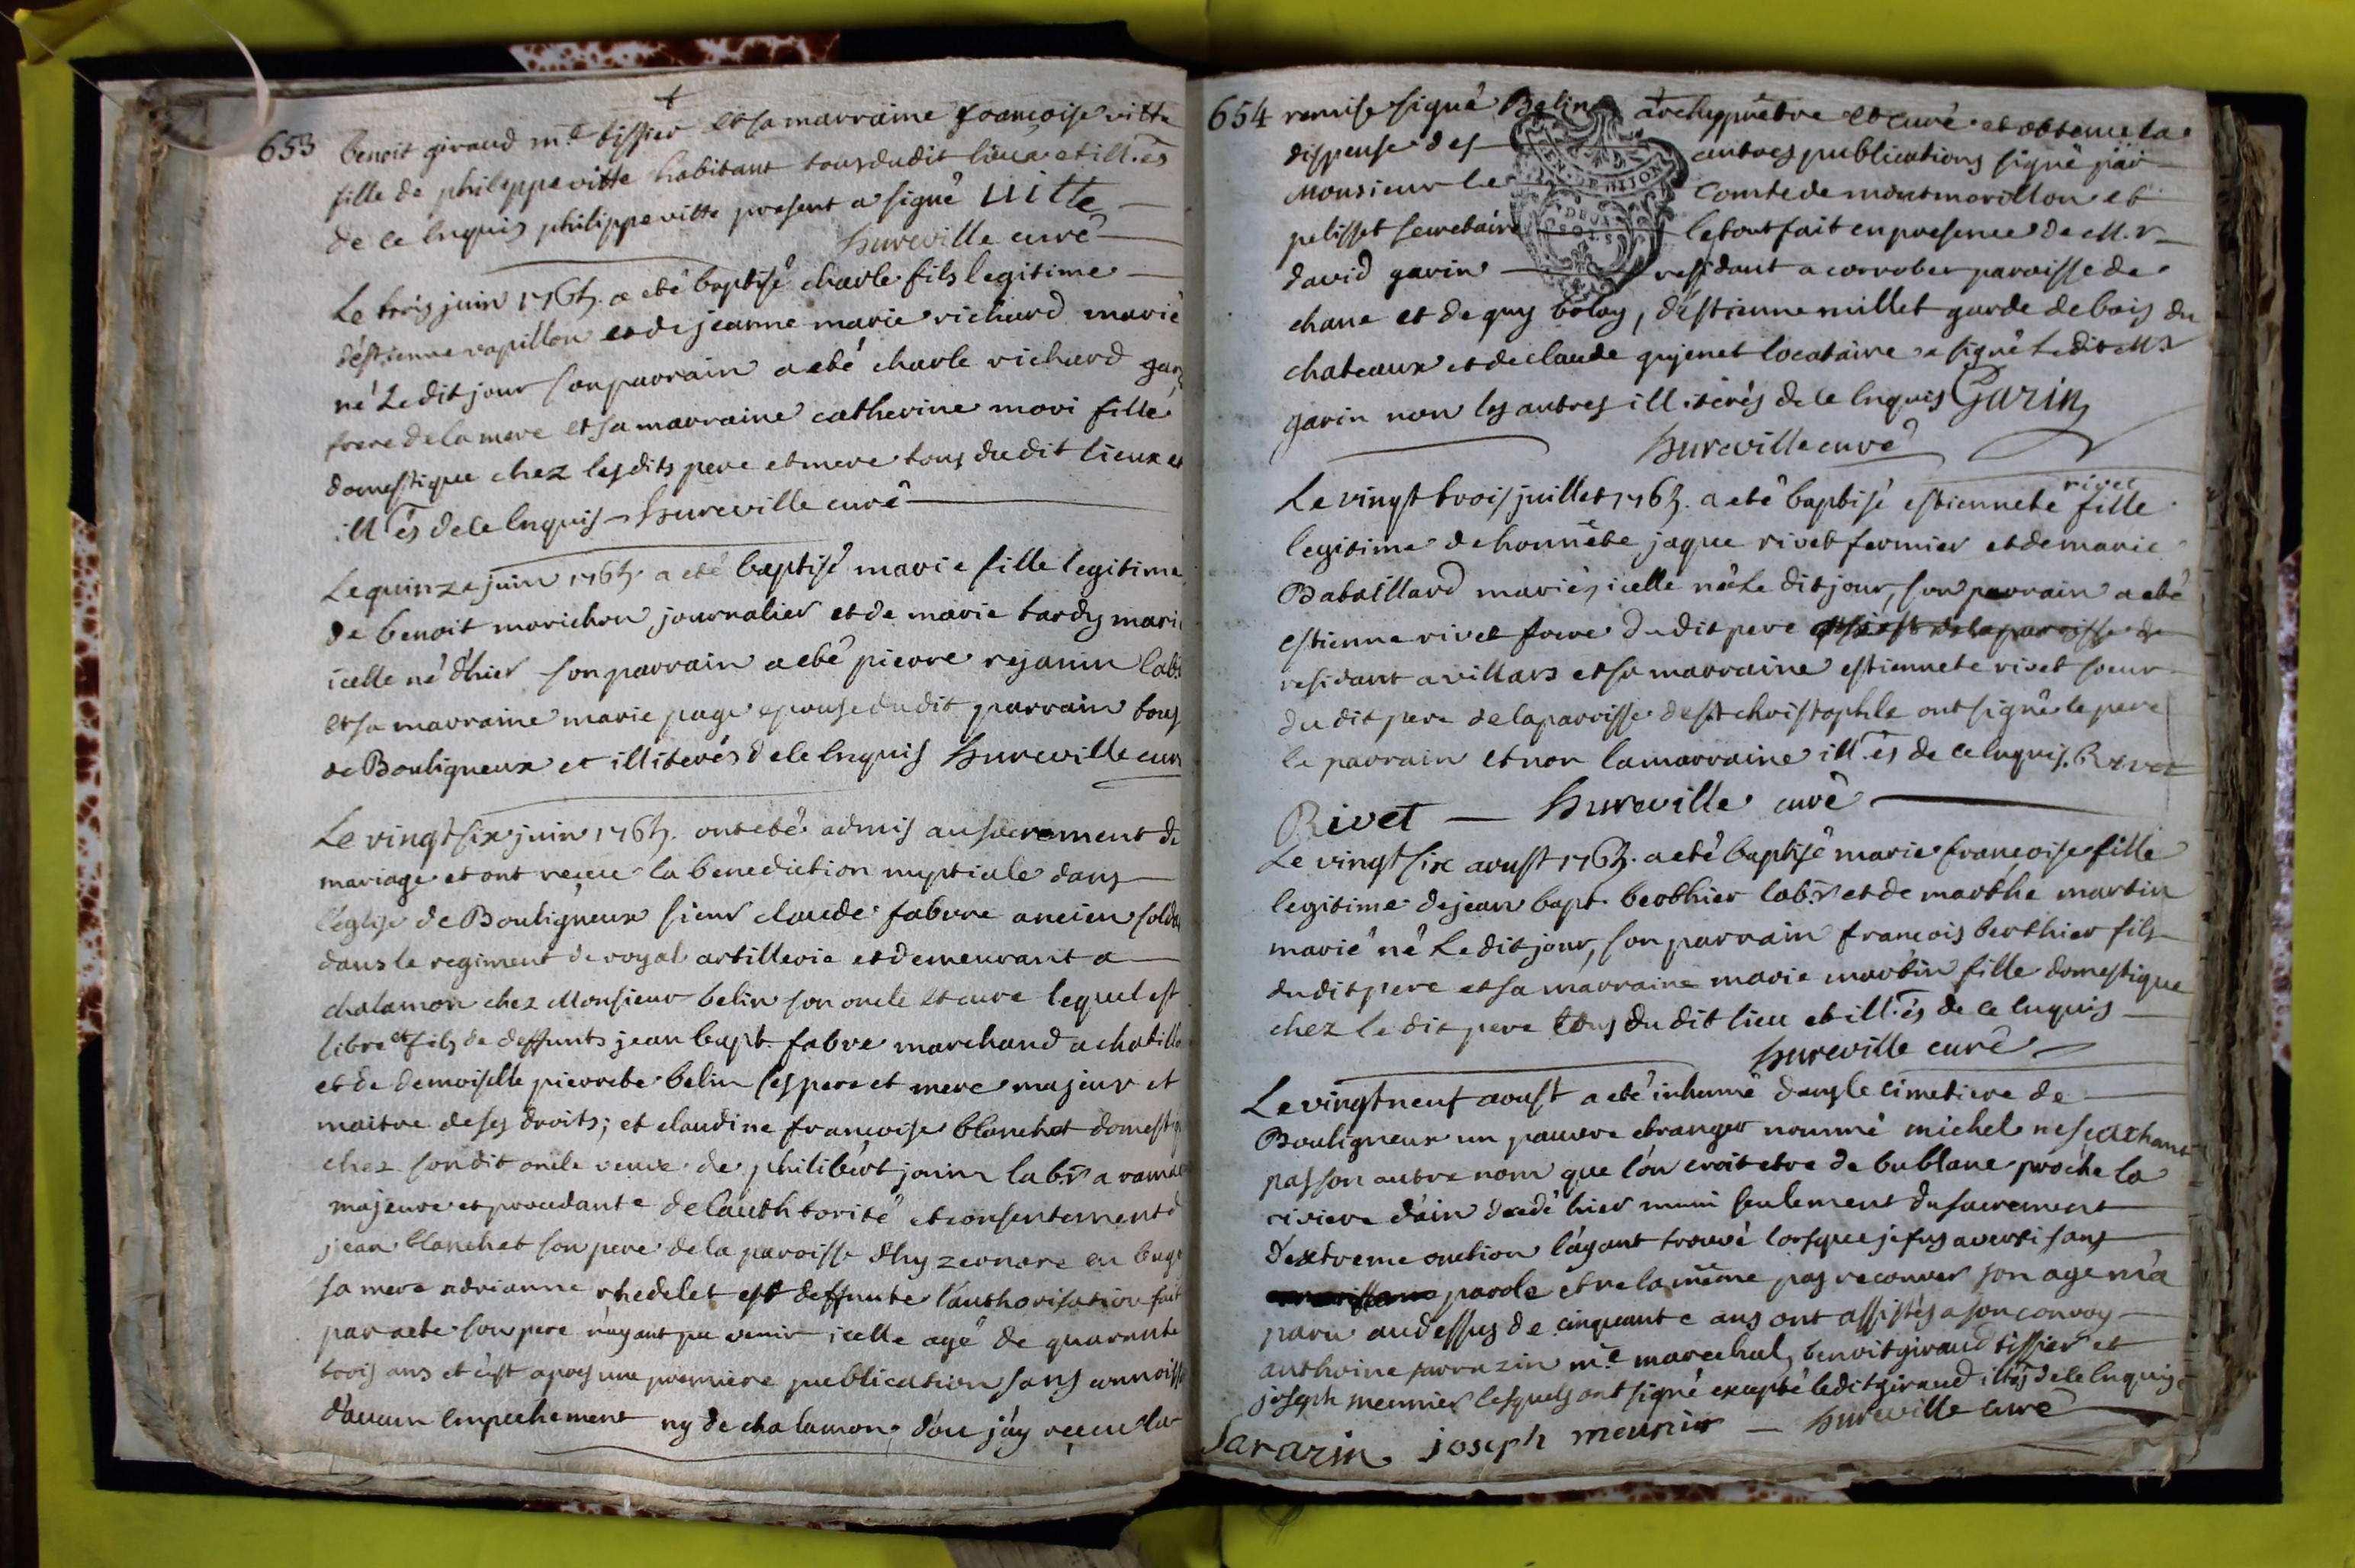 653
benoit giraud m.e tissier et sa marraine francoise vitte
fille de philippe vitte habitant tous du dit lieux et ill.és
de ce enquis philippe vitte present a signé Vitte
hureville curé
Le trois juin 1763. a eté baptisé charle fils legitime
d'éstienne papillon et de jeanne marie richard marié
né Ledit jour son parrain a eté charle richard
frere de la mere et sa marraine catherine mori fille
domestique chez lesdits pere et mere tous du dit lieux et
ill és de ce enquis hureville curé
Le quinze juin 1763. a eté baptisé marie fille legitime
de benoit morichon journalier et de marie tardy
icelle né d'hier son parrain a eté pierre rejanin lab.
et sa marraine marie page epouse du dit parrain tous
de Bouligneux et illiterés de ce enquis hureville
Le vingt six juin 1763. ont eté admis au sacrement de
mariage et ont receu la benediction nuptiale dans
l'église de Bouligneux sieur claude fabvre ancien
dans le regiment de royal artillerie et demeurant a
chalamon chez Monsieur belin son oncle et curé lequel est
libre et fils de deffunts jean bapt. fabre marchand a
et de demoiselle pierrete belin ses pere et mere majeur et
maitre de ses droits; et claudine francoise blanchet
chez son dit oncle veuve de philibért janin lab.r a
majeure et procedante de l'auththorité et consentement
jean blanchet son pere de la paroisse d'hyzernore en
sa mere adrianne rhedelet est deffunte l'authorisation
par acte son pere n'ayant pu venir icelle agé de quarante
trois ans et c'est apres une premiere publication sans
d'aucun empechement ny de chalamon d'ou j'ay receu la
654 remise signé Belin archypprêtre et curé et obtenu la
dispense des autres publications signé par
Monsieur le Comte de montmorillon et
pelisset secretaire le tout fait en presence de M.r
EN. DE DIJON
DEUX
SOLS
david garin residant a corrober paroisse de
chane et de guy bolay, d'éstienne millet garde de bois du
chateaux et de claude guyenet locataire a signé Ledit M.r
garin non les autres illiterés de ce enquis Garin
hureville curé
Le vingt trois juillet 1763. a eté baptisé estiennete rivet fille
legitime de honnéte jaque rivet fermier et de marie
Bataillard mariés, icelle né Le dit jour, son parrain a eté
estienne rivet frere du dit pere
residant a villars et sa marraine estiennete rivet soeur
du dit pere de la paroisse de st christophle ont signé le pere
le parrain et non la marraine ill.és de ce enquis. Rivet
Rivet hureville curé
Le vingt six aoust 1763. a eté baptisé marie francoise fille
legitime de jean bapt. berthier lab.r et de marthe martin
marié né Ledit jour, son parrain francois berthier fils
du dit pere et sa marraine marie martin fille domestique
chez le dit pere tous du dit lieu et ill.és de ce enquis
hureville curé
Le vingt neuf aoust a eté inhumé dans le cimetiere de
Bouligneux un pauvre etranger nommé michel ne scachant
pas son autre nom que l'on croit etre de bublane proche la
riviere d'ain decedé hier muni seulement du sacrement
d'extreme onction l'ayant trouvé lorsque je fus averti sans
parole et ne la même pas recouvré son age m'a
paru au dessus de cinquante ans ont assistés a son convoy
anthoine sarrazin m.e marechal, benoit giraud tissier et
joseph meunier lesquels ont signé excepté ledit giraud ill és de ce enquis
Sarazin joseph meunier hureville curé